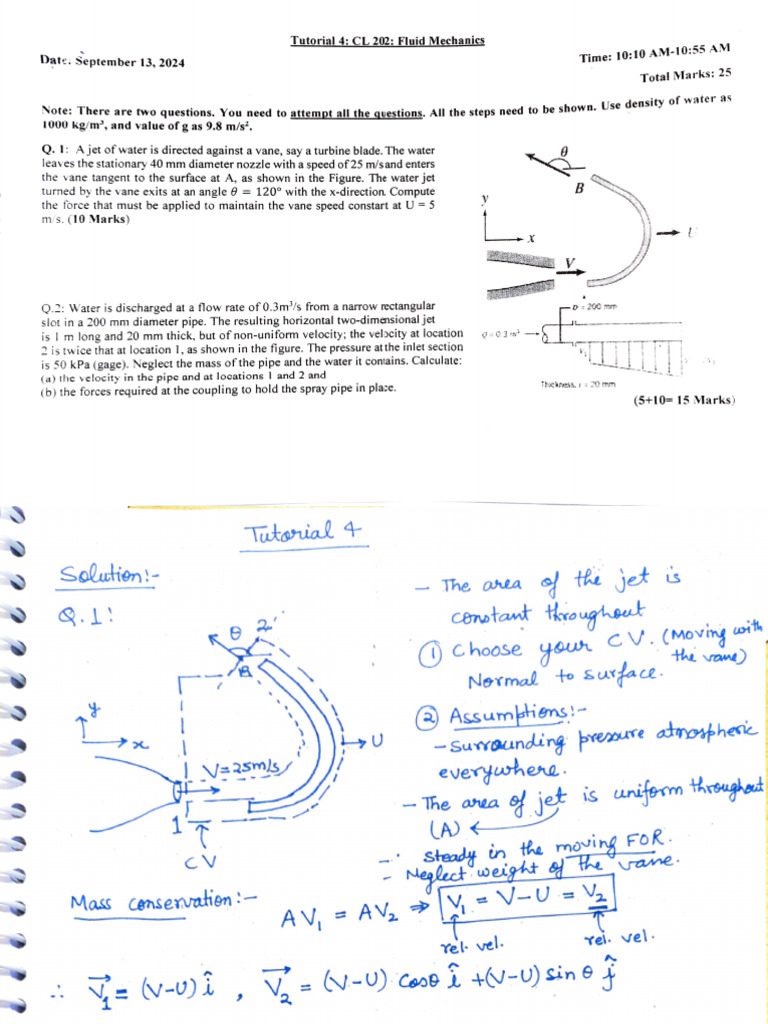 Tutorial 4: CL 202: Fluid Mechanics
Date. September 13, 2024
Time: 10:10 AM-10:55 AM
Total Marks: 25
Note: There are two questions. You need to attempt all the questions. All the steps need to be shown. Use density of water as
1000 kg/m³, and value of g as 9.8 m/s².
Q. 1: A jet of water is directed against a vane, say a turbine blade. The water
leaves the stationary 40 mm diameter nozzle with a speed of 25 m/s and enters
the vane tangent to the surface at A, as shown in the Figure. The water jet
turned by the vane exits at an angle θ = 120° with the x-direction. Compute
the force that must be applied to maintain the vane speed constart at U = 5
m/s. (10 Marks)
θ
B
y
x
U
V
Q.2: Water is discharged at a flow rate of 0.3m³/s from a narrow rectangular
slot in a 200 mm diameter pipe. The resulting horizontal two-dimensional jet
is 1 m long and 20 mm thick, but of non-uniform velocity; the velocity at location
2 is twice that at location 1, as shown in the figure. The pressure at the inlet section
is 50 kPa (gage). Neglect the mass of the pipe and the water it contains. Calculate:
(a) the velocity in the pipe and at locations 1 and 2 and
(b) the forces required at the coupling to hold the spray pipe in place.
D = 200 mm
Q = 0.3 m³
V₁
Thickness, t = 20 mm
(5+10= 15 Marks)
Tutorial 4
Solution:-
Q.1:
θ
2
B
y
x
U
V=25m/s
1
CV
- The area of the jet is
constant throughout
① Choose your CV. (Moving with
the vane)
Normal to surface.
② Assumptions:-
- Surrounding pressure atmospheric
everywhere.
- The area of jet is uniform throughout
(A) ←
- Steady in the moving FOR.
- Neglect weight of the vane.
Mass conservation:-
AV₁ = AV₂ ⇒ V₁ = V-U = V₂
rel. vel.
rel. vel.
∴ V⃗₁ = (V-U) î , V⃗₂ = (V-U) cosθ î +(V-U) sin θ ĵ